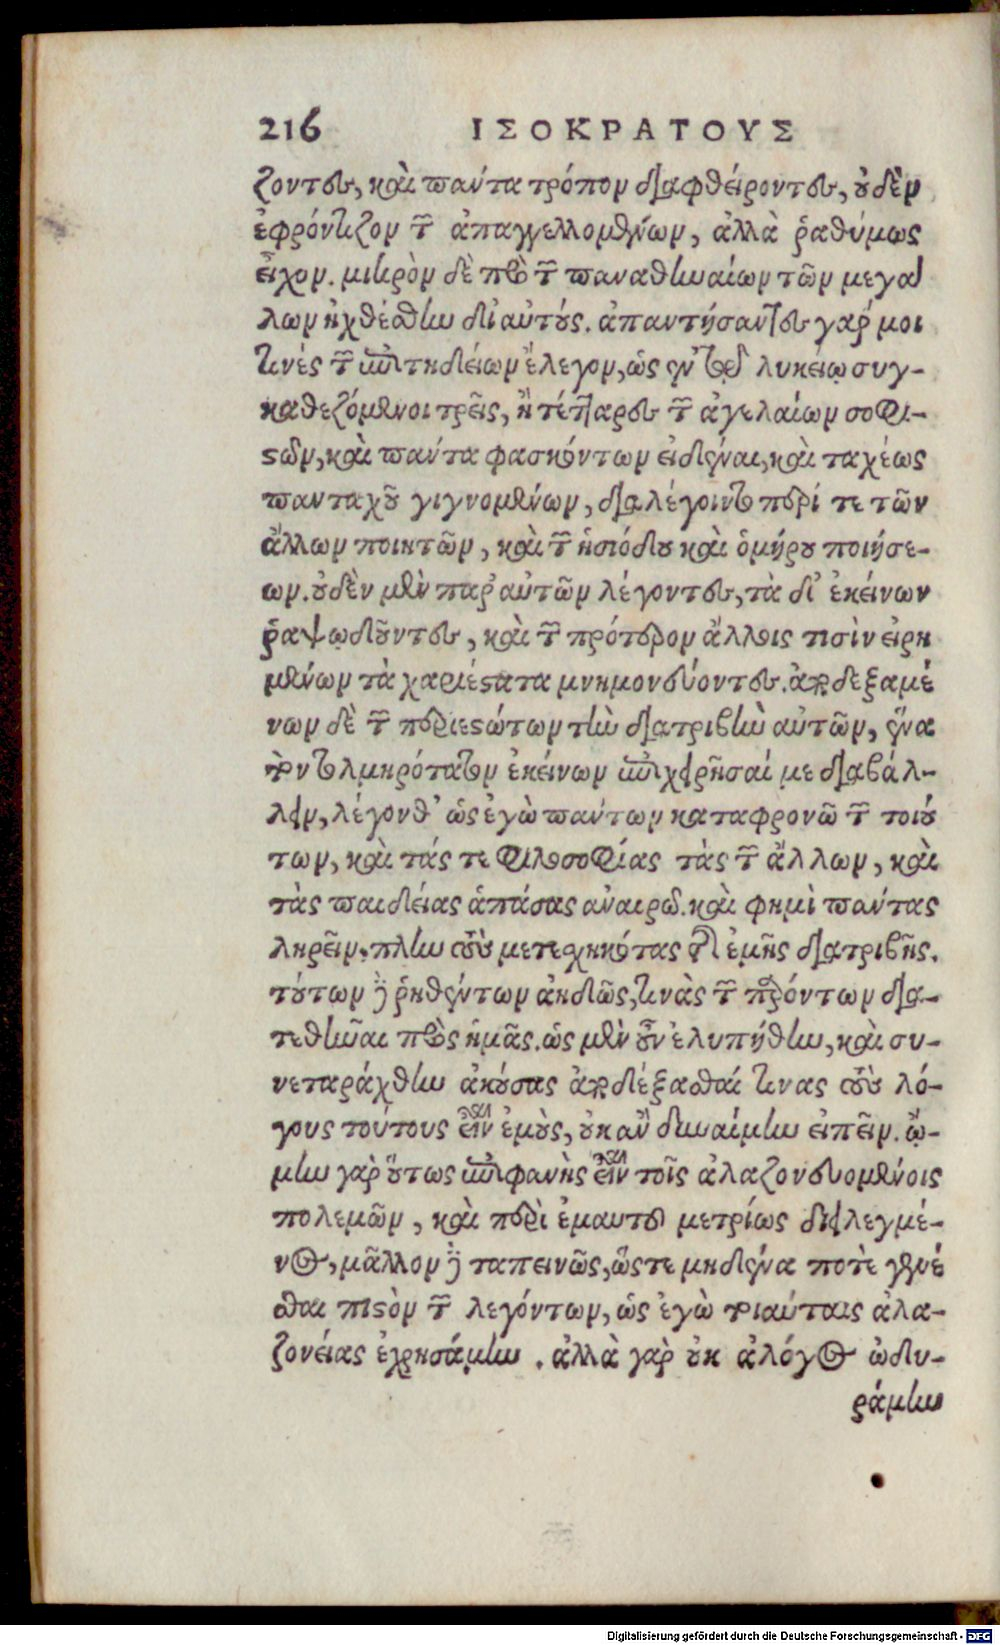 216 ΙΣΟΚΡΑΤΟΥΣ
ζοντες, καὶ πάντα τρόπον διαφθείροντες, οὐδὲν
ἐφρόντιζον τῶν ἀπαγγελλομένων, ἀλλὰ ῥαθύμως
εἶχον. μικρὸν δὲ πρὸ τῶν παναθηναίων τῶν μεγά
λων ἠχθέσθην δι' αὐτούς. ἀπαντήσαντες γάρ μοι
τινὲς τῶν ἐπιτηδείων ἔλεγον, ὡς ἐν τῷ λυκείῳ συγ-
καθεζόμενοι τρεῖς, ἢ τέτταρες τῶν ἀγελαίων σοφι-
στῶν, καὶ πάντα φασκόντων εἰδέναι, καὶ ταχέως
πανταχοῦ γιγνομένων, διαλέγοιντο περί τε τῶν
ἄλλων ποιητῶν, καὶ τῆς ἡσιόδου καὶ ὁμήρου ποιήσε-
ων. οὐδὲν μὲν παρ' αὐτῶν λέγοντες, τὰ δ' ἐκείνων
ῥαψῳδοῦντες, καὶ τῶν πρότερον ἄλλοις τισὶν εἰρη
μένων τὰ χαριέστατα μνημονεύοντες. ἀποδεξαμέ
νων δὲ τῶν περιεστώτων τὴν διατριβὴν αὐτῶν, ἕνα
τὸν τολμηρότατον ἐκείνων ἐπιχειρῆσαί με διαβάλ-
λειν, λέγονθ' ὡς ἐγὼ πάντων καταφρονῶ τῶν τοιού
των, καὶ τάς τε φιλοσοφίας τὰς τῶν ἄλλων, καὶ
τὰς παιδείας ἁπάσας ἀναιρῶ. καὶ φημὶ πάντας
ληρεῖν, πλὴν τοὺς μετεσχηκότας τῆς ἐμῆς διατριβῆς.
τούτων δὲ ῥηθέντων ἀηδῶς, τινὰς τῶν παρόντων δια-
τεθῆναι πρὸς ἡμᾶς. ὡς μὲν οὖν ἐλυπήθην, καὶ συ-
νεταράχθην ἀκούσας ἀποδέξασθαί τινας τοὺς λό-
γους τούτους εἶναι ἐμοὺς, οὐκ ἂν δυναίμην εἰπεῖν. ᾤ-
μην γὰρ οὕτως ἐπιφανὴς εἶναι τοῖς ἀλαζονευομένοις
πολεμῶν, καὶ περὶ ἐμαυτοῦ μετρίως διειλεγμέ-
νος, μᾶλλον δὲ ταπεινῶς, ὥστε μηδένα ποτὲ γενέ
σθαι πιστὸν τῶν λεγόντων, ὡς ἐγὼ τοιαύταις ἀλα-
ζονείαις ἐχρησάμην. ἀλλὰ γὰρ οὐκ ἀλόγως ὠδυ-
ράμην
Digitalisierung gefördert durch die Deutsche Forschungsgemeinschaft - DFG